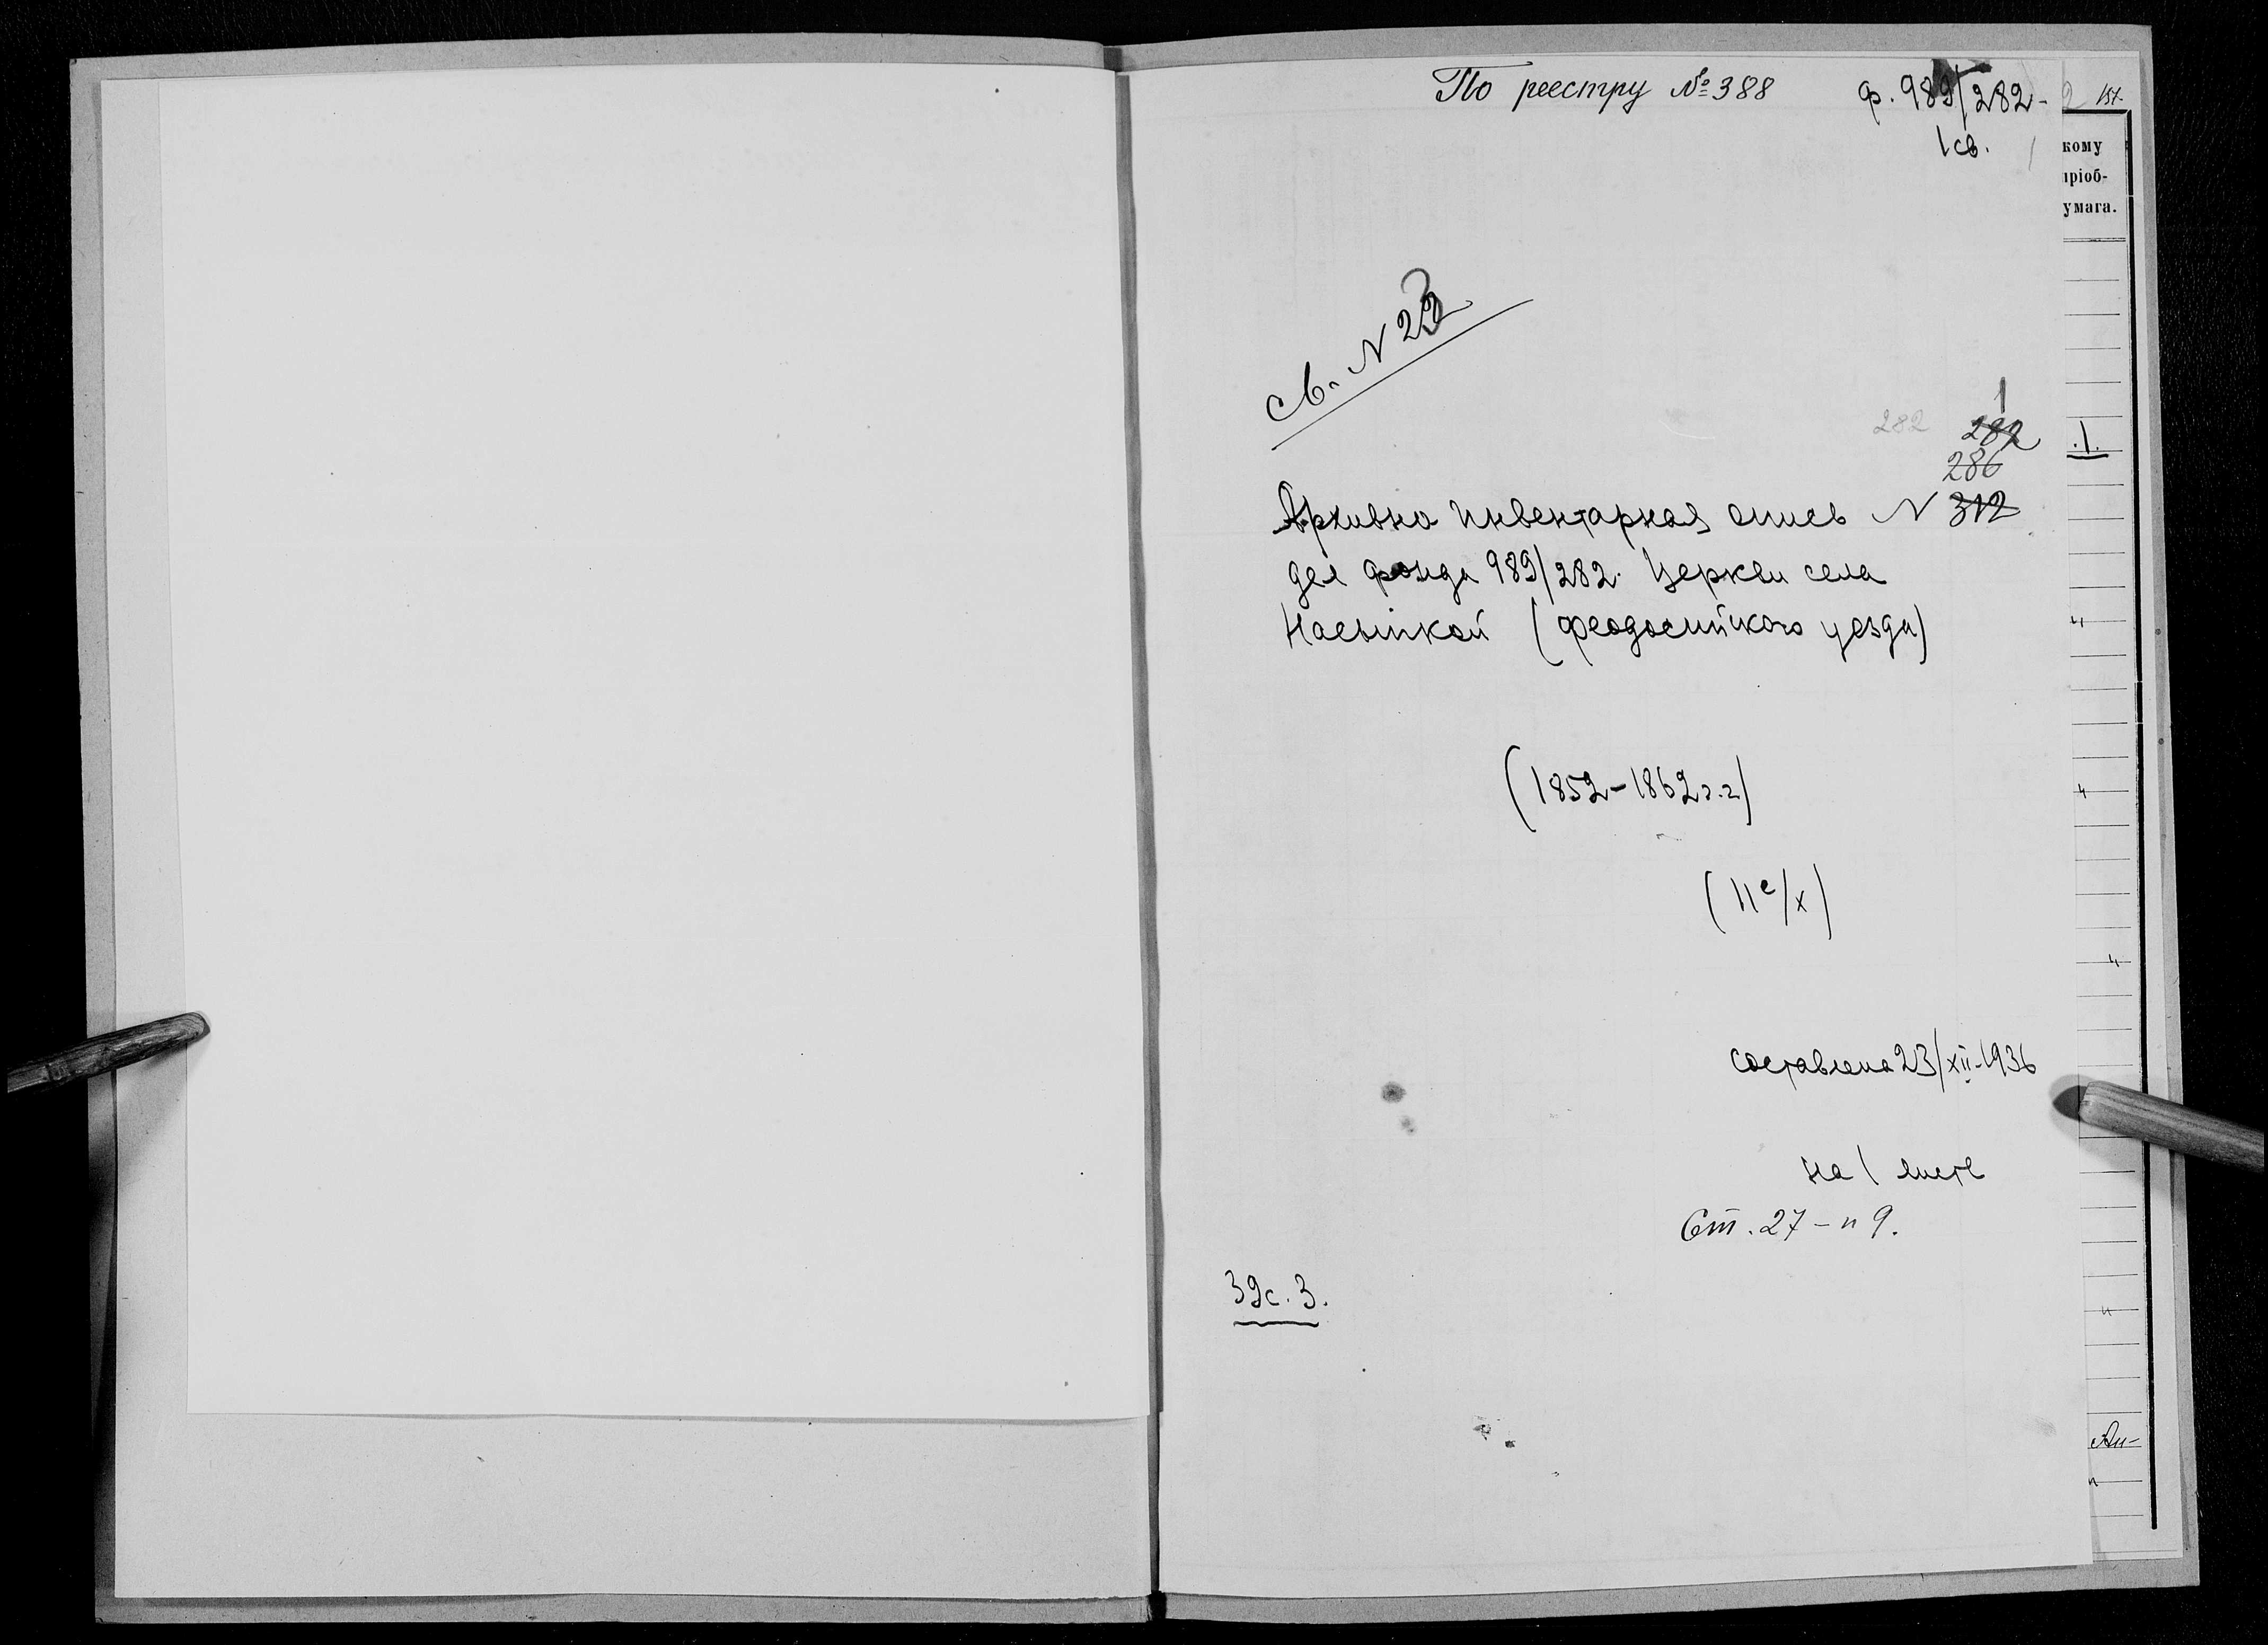 По реестру № 388
ф. 989/282-
1 св.
св. N 23
1
282 282
286
Архивно инвентарная опись N 312
дел фонда 989/282. Церкви села
Насыпкой (феодосийского уезда)
(1852-1862 г.г)
(11 е/х)
составлена 23/XII-1936
на 1 листе
Ст. 27 - п 9.
39с. 3.
кому
пріоб-
умага.
.1.